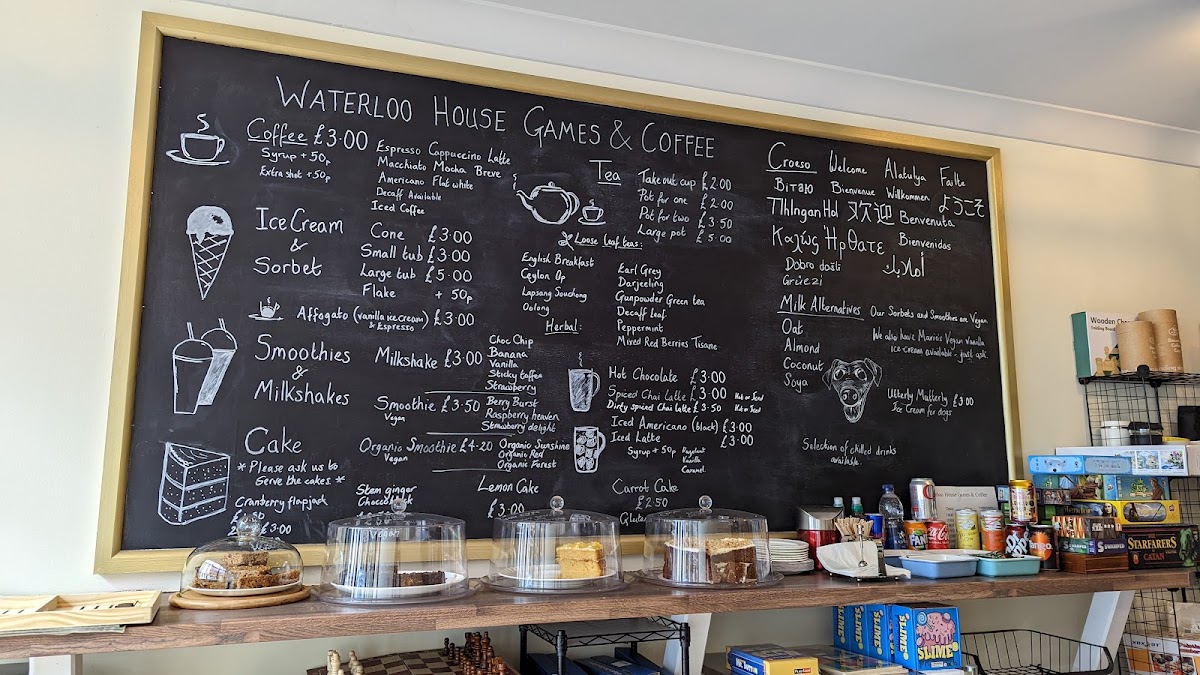 WATERLOO HOUSE GAMES & COFFEE
Coffee £3·00
Syrup + 50p
Extra shot + 50p
Espresso Cappuccino Latte
Macchiato Mocha Breve
Americano Flat white
Decaff Available
Iced Coffee
Ice Cream
&
Sorbet
Cone £3·00
Small tub £3·00
Large tub £5·00
Flake + 50p
Affogato (vanilla ice cream) £3·00
& Espresso
Smoothies
&
Milkshakes
Milkshake £3·00
Choc Chip
Banana
Vanilla
Sticky toffee
Strawberry
Smoothie £3·50
Vegan
Berry Burst
Raspberry heaven
Strawberry delight
Organic Smoothie £4·20
Vegan
Organic Sunshine
Organic Red
Organic Forest
Cake
* Please ask us to
Serve the cakes *
Cranberry flapjack
£3·00
Stem ginger
Vegan
Lemon Cake
£3·00
Carrot Cake
£2·50
Tea
Take out cup £2·00
Pot for one £2·00
Pot for two £3·50
Large pot £5·00
Loose leaf teas:
English Breakfast
Ceylon Op
Lapsang Souchong
Oolong
Earl Grey
Darjeeling
Gunpowder Green tea
Decaff leaf
Herbal:
Peppermint
Mixed Red Berries Tisane
Hot Chocolate £3·00
Spiced Chai latte £3·00 Hot or Iced
Dirty spiced Chai latte £3·50 Hot or Iced
Iced Americano (black) £3·00
Iced Latte £3·00
Syrup + 50p
Hazelnut
Vanilla
Caramel
Croeso Welcome Alatulya Failte
Вітаю Bienvenue Willkommen ようこそ
TlhIngan Hol 欢迎 Benvenuta
Καλώς Ήρθατε Bienvenidas
Dobro došli
Grüezi
Milk Alternatives
Oat
Almond
Coconut
Soya
Our Sorbets and Smoothies are Vegan
We also have Mario's Vegan Vanilla
ice-cream available - just ask.
Utterly Mutterly £3·00
Ice Cream for dogs
Selection of chilled drinks
available
Wooden
STARFARERS
CATAN
SLIME
SLIME
SLIME